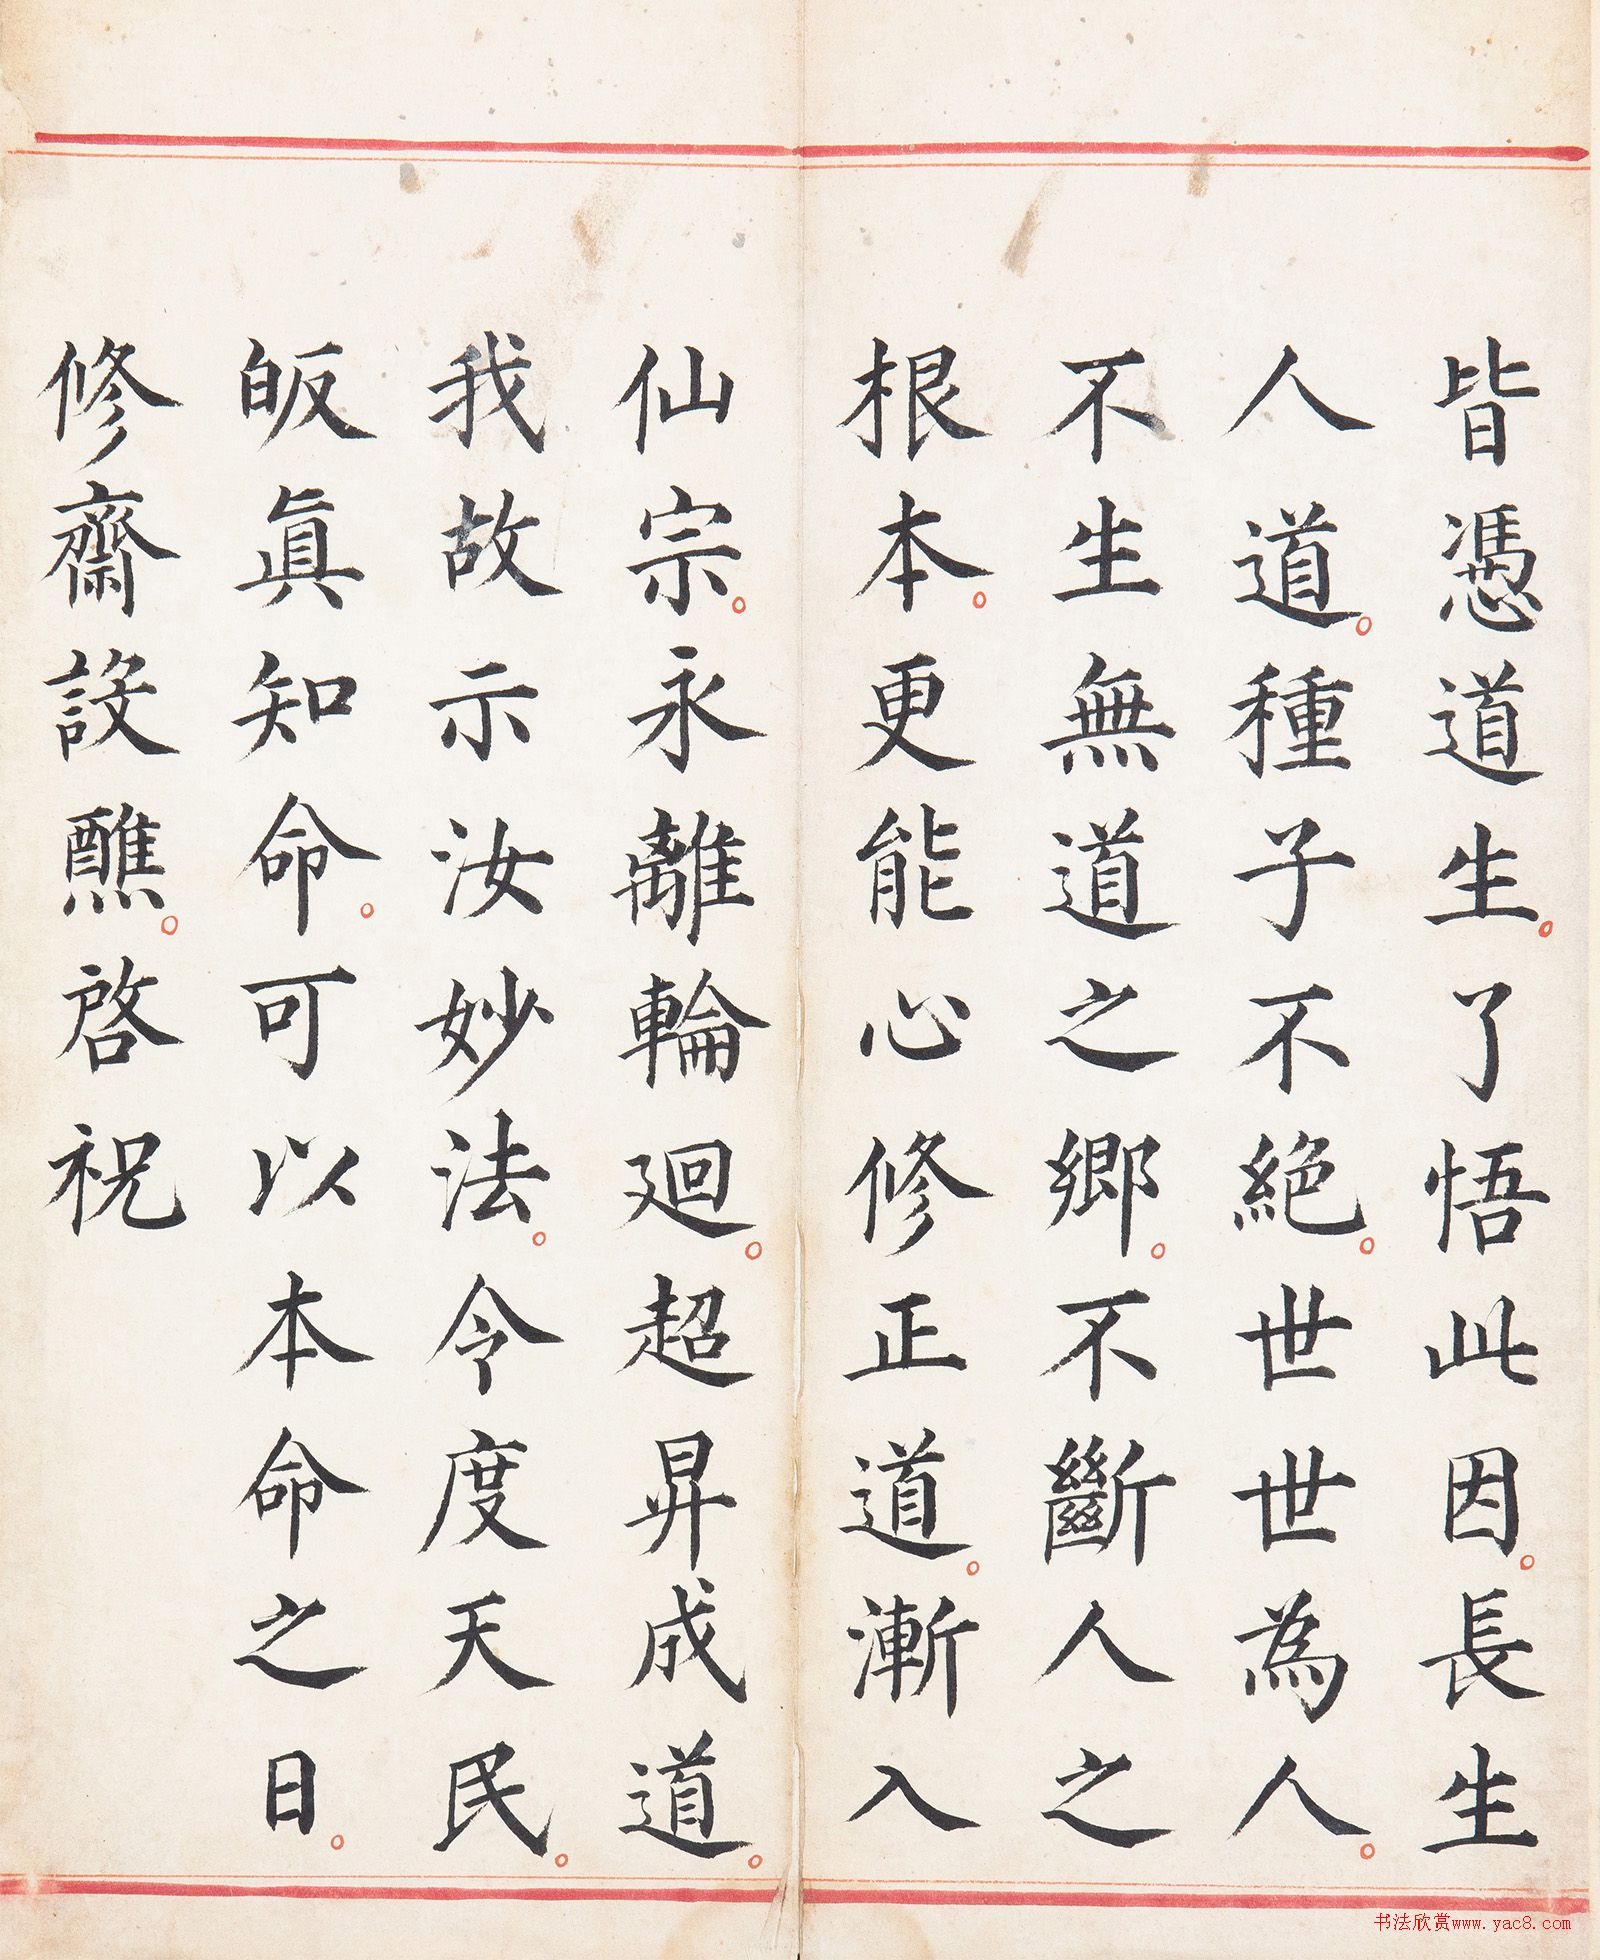 皆憑道生。了悟此因。長生
人道。種子不絕。世世為人。
不生無道之鄉。不斷人之
根本。更能心修正道。漸入
仙宗。永離輪廻。超昇成道。
我故示汝妙法。令度天民。
皈眞知命。可以本命之日。
修齋設醮。啓祝
书法欣赏www.yac8.com